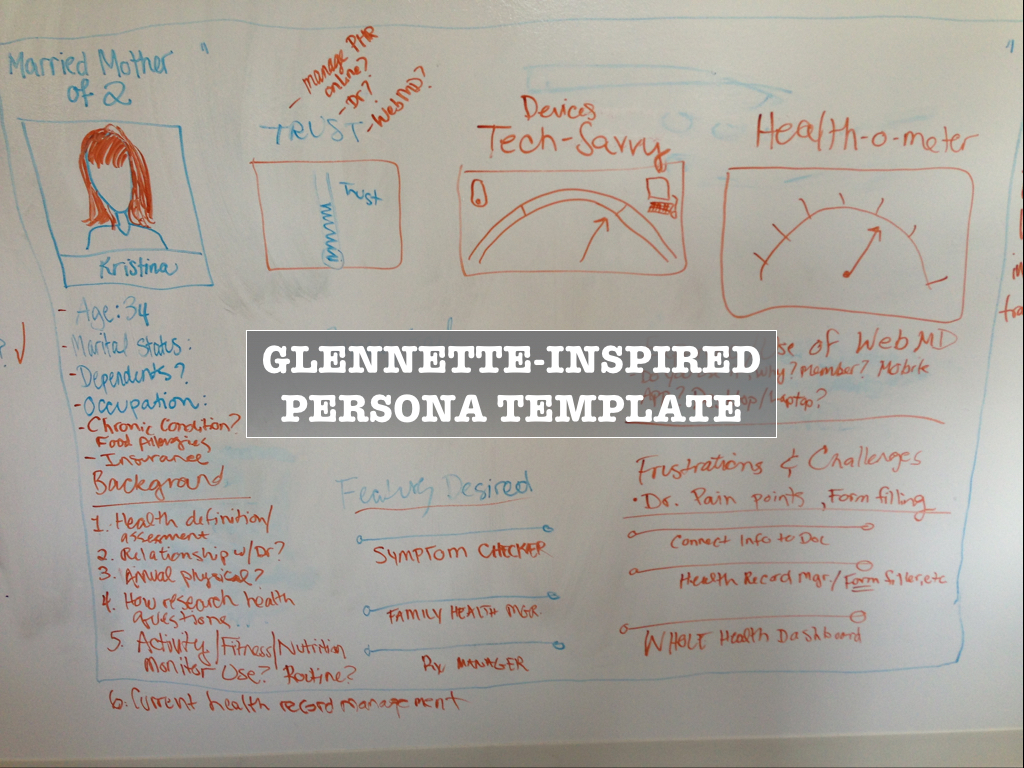 Married Mother
of 2
Kristina
- Age: 34
- Marital Status:
- Dependents?
- Occupation:
- Chronic Condition?
Food Allergies
- Insurance
Background
1. Health definition/
assessment
2. Relationship w/Dr?
3. Annual physical?
4. How research health
questions...
5. Activity/Fitness/Nutrition
Monitor Use? Routine?
6. Current health record management
- manage PHR
online?
- Dr?
- WebMD?
TRUST
Trust
Devices
Tech-Savvy
Health-o-meter
GLENNETTE-INSPIRED
PERSONA TEMPLATE
Use of WebMD
why? Member? Mobile
/Laptop?
Features Desired
SYMPTOM CHECKER
FAMILY HEALTH MGR.
Rx MANAGER
Frustrations & Challenges
• Dr. Pain points, Form filling
Connect Info to Doc
Health Record Mgr./Form filler, etc
WHOLE Health Dashboard